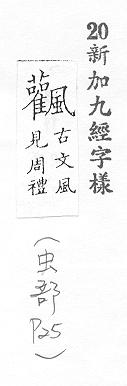 20新加九經字樣
飌
古文風
見周禮
(虫部P25)